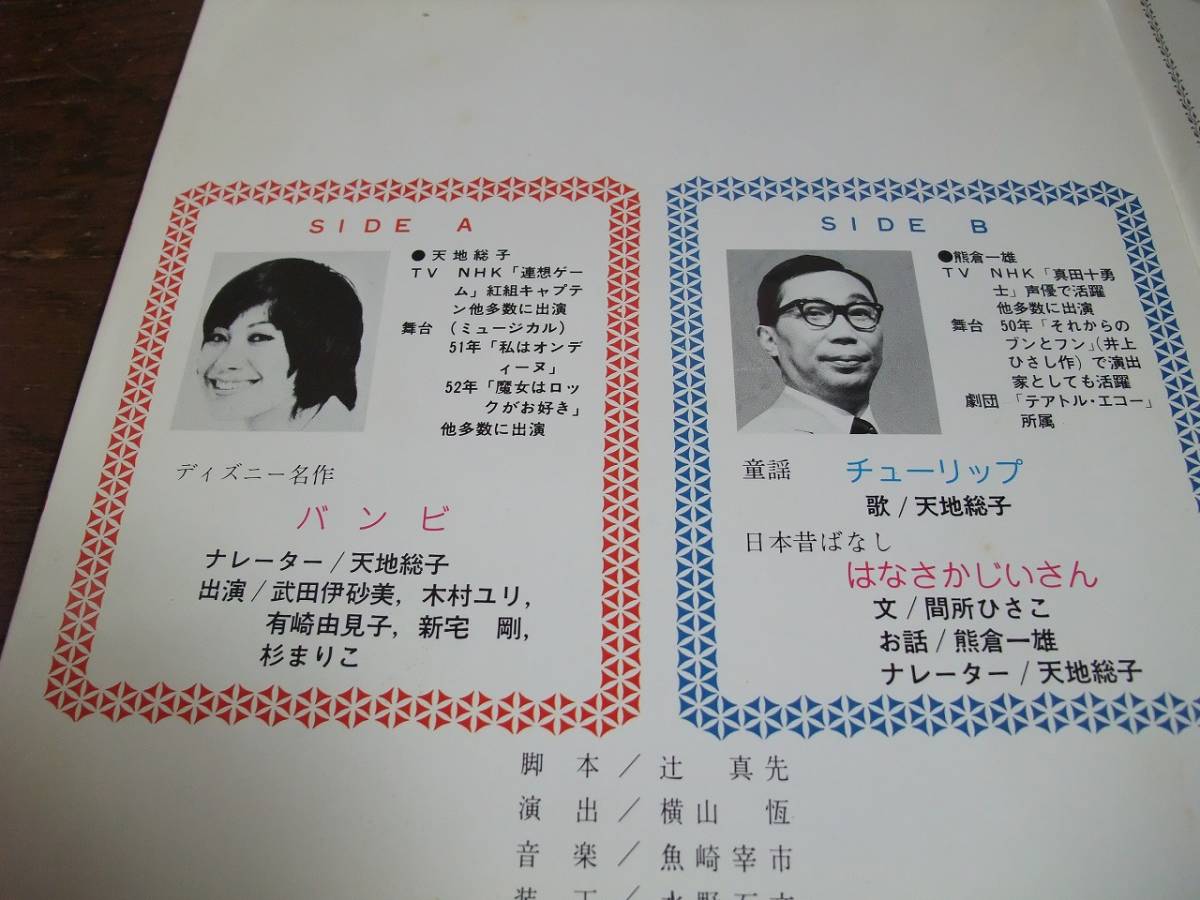 SIDE A
●天地総子
TV NHK「連想ゲー
ム」紅組キャプテ
ン他多数に出演
舞台 (ミュージカル)
51年「私はオンデ
ィーヌ」
52年「魔女はロッ
クがお好き」
他多数に出演
ディズニー名作
バンビ
ナレーター/天地総子
出演/武田伊砂美, 木村ユリ,
有崎由見子, 新宅 剛,
杉まりこ
SIDE B
●熊倉一雄
TV NHK「真田十勇
士」声優で活躍
他多数に出演
舞台 50年「それからの
ブンとフン」(井上
ひさし作)で演出
家としても活躍
劇団 「テアトル・エコー」
所属
童謡 チューリップ
歌/天地総子
日本昔ばなし
はなさかじいさん
文/間所ひさこ
お話/熊倉一雄
ナレーター/天地総子
脚本/辻 真先
演出/横山 恆
音楽/魚崎宰市